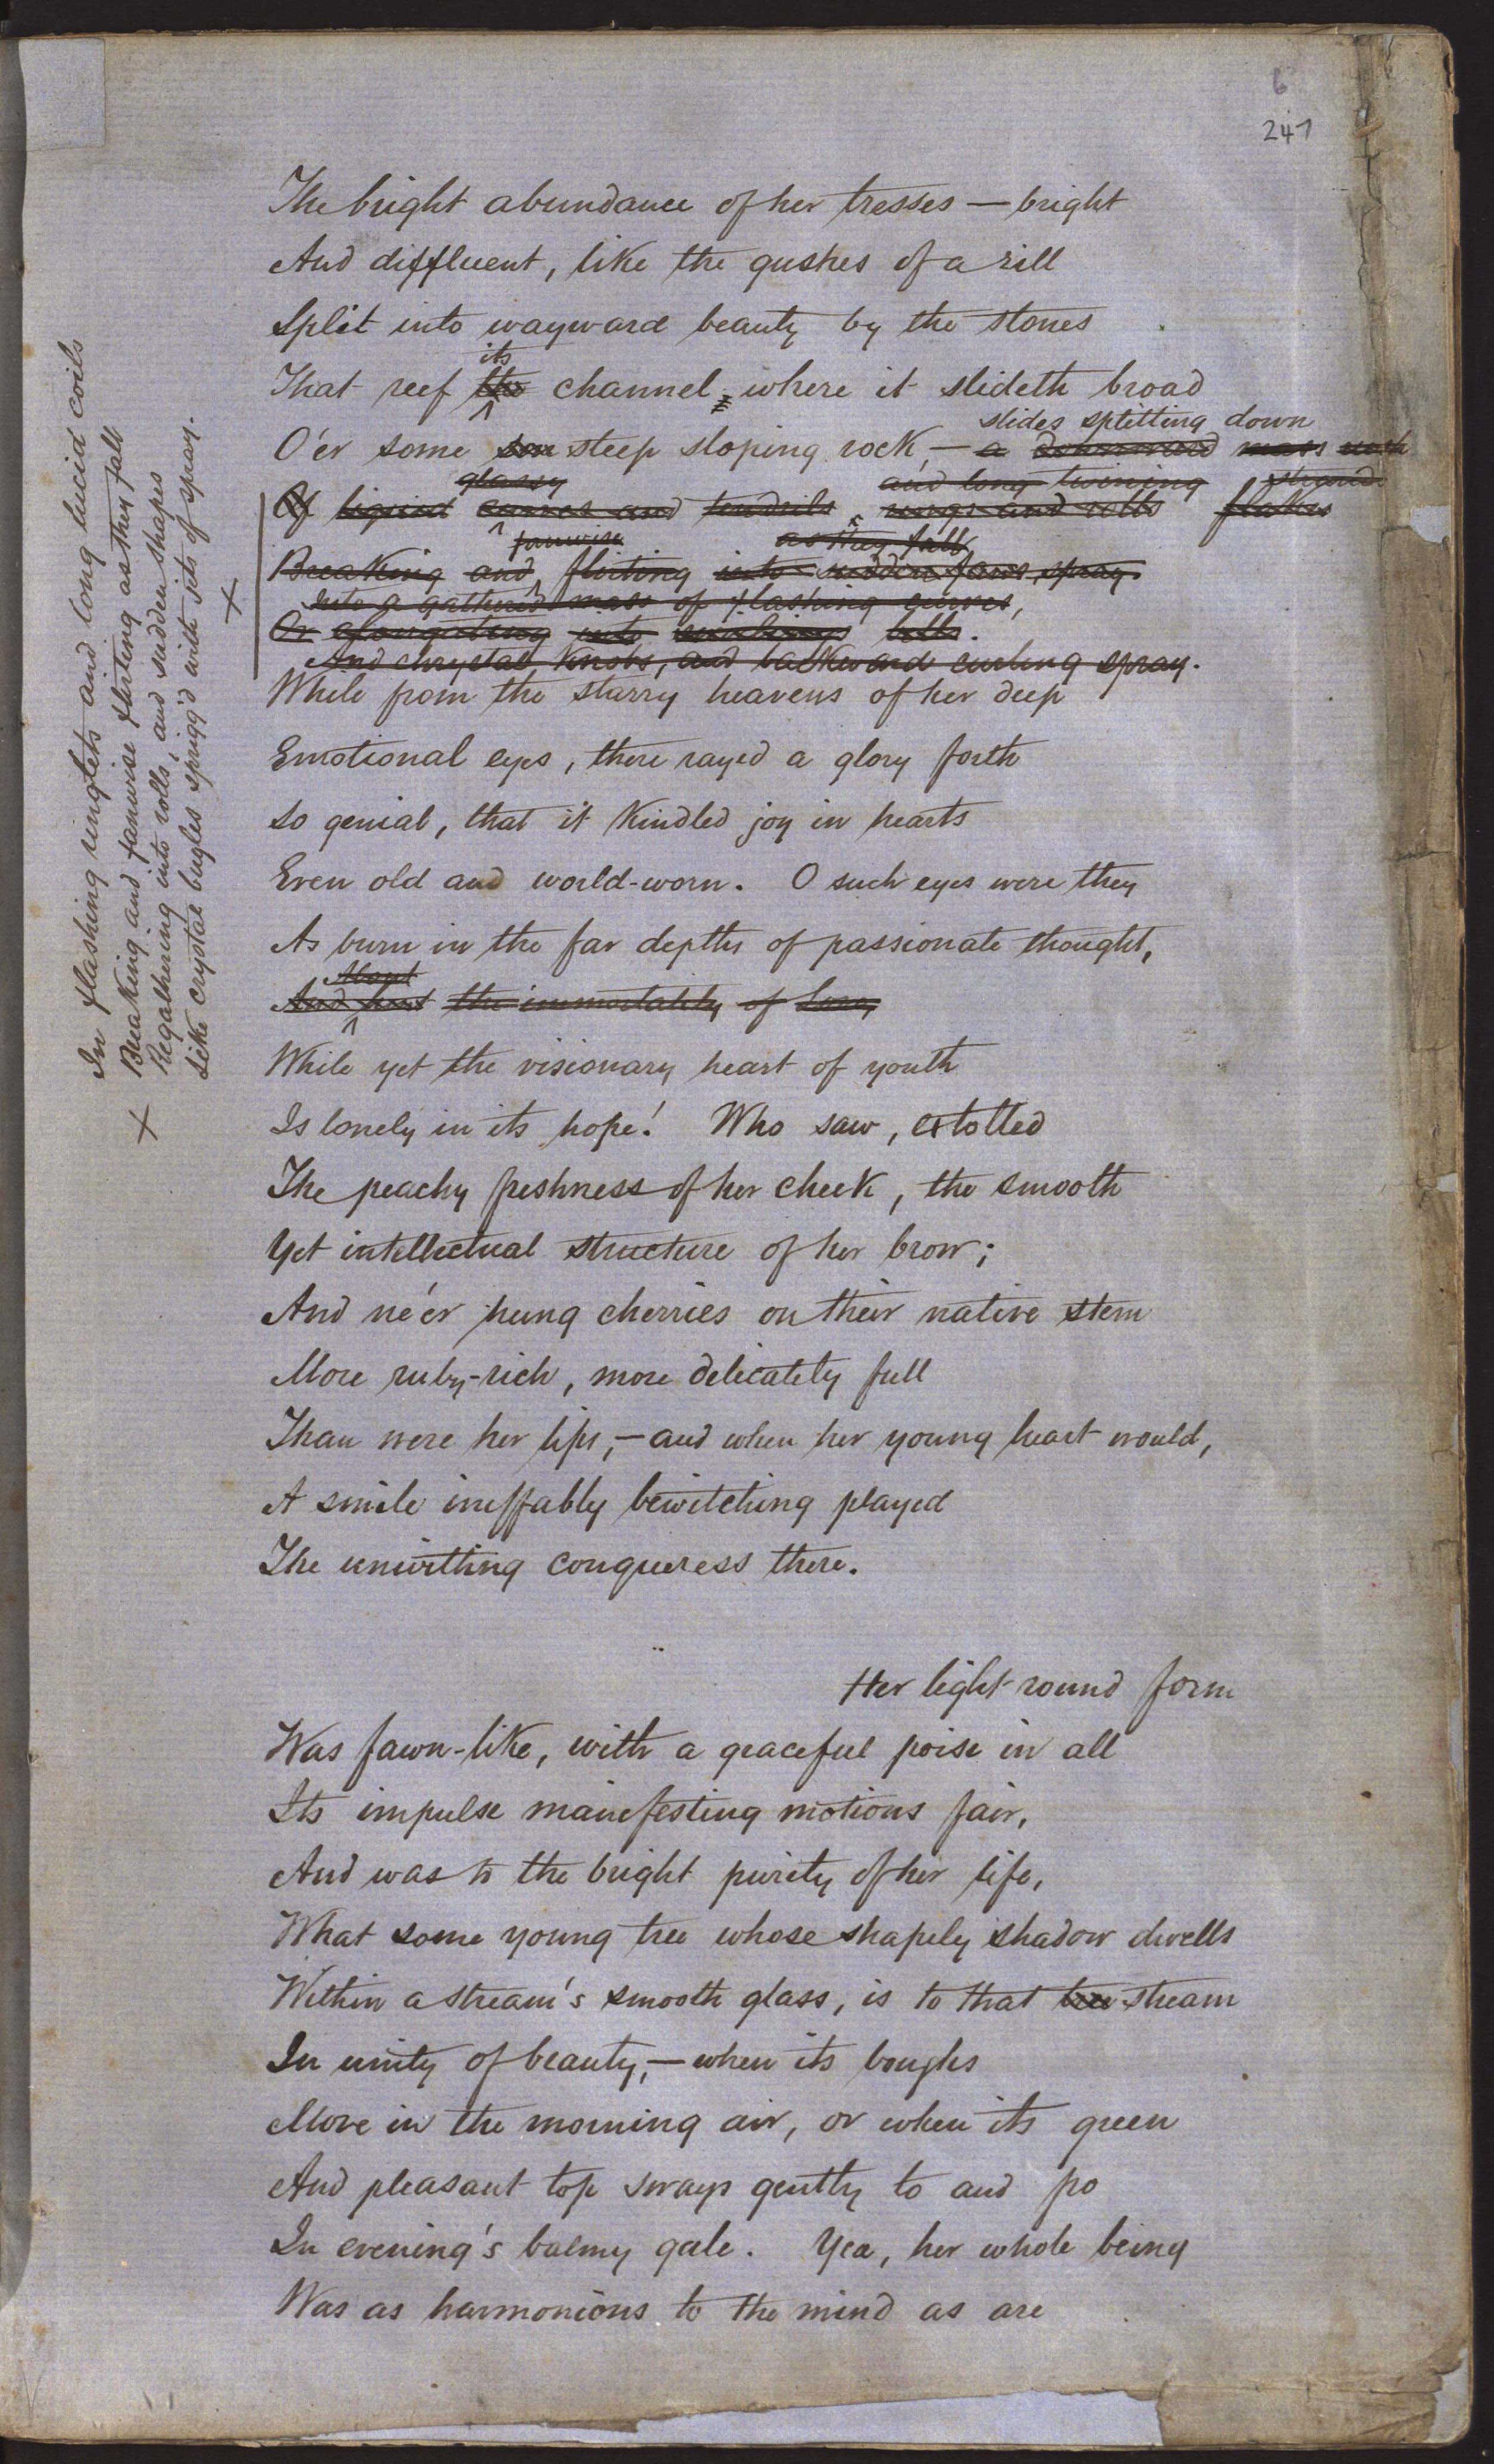 6
247
The bright abundance of her tresses — bright
And diffluent, like the gushes of a rill
Split into wayward beauty by the stones
its
That reef the channel, where it slideth broad
slides splitting down
O'er some steep sloping rock, — a downward mass
glassy and long twining strands
Of liquid curves and tendrils rings and rolls flakes
fanwise as they fall
Breaking and flirting into sudden fans, spray.
Into a gathered mass of flashing curves,
Or elongating into bells.
And chrystal knobs, and backward curling spray.
While from the starry heavens of her deep
Emotional eyes, there rayed a glory forth
So genial, that it kindled joy in hearts
Even old and world-worn. O such eyes were they
As burn in the far depths of passionate thought,
And the immortality of Love
While yet the visionary heart of youth
Is lonely in its hope! Who saw, extolled
The peachy freshness of her cheek, the smooth
Yet intellectual structure of her brow;
And ne'er hung cherries on their native stem
More ruby-rich, more delicately full
Than were her lips, — and when her young heart would,
A smile ineffably bewitching played
The unwitting conqueress there.
Her light round form
Was fawn-like, with a graceful poise in all
Its impulse manifesting motions fair,
And was to the bright purity of her life,
What some young tree whose shapely shadow dwells
Within a stream's smooth glass, is to that tree stream
In unity of beauty, — when its boughs
Move in the morning air, or when its green
And pleasant top sways gently to and fro
In evening's balmy gale. Yea, her whole being
Was as harmonious to the mind as are
X In flashing ringlets and long lucid coils
Breaking and fanwise flirting as they fall
Regathering into rolls, and sudden shapes
Like crystal bugles sprigg'd with jets of spray. X